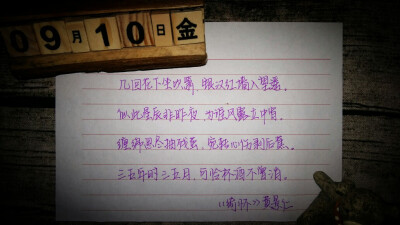 09月10日金
几回花下坐吹箫,银汉红墙入望遥。
似此星辰非昨夜,为谁风露立中宵。
缠绵思尽抽残茧,宛转心伤剥后蕉。
三五年时三五月,可怜杯酒不曾消。
《绮怀》黄景仁